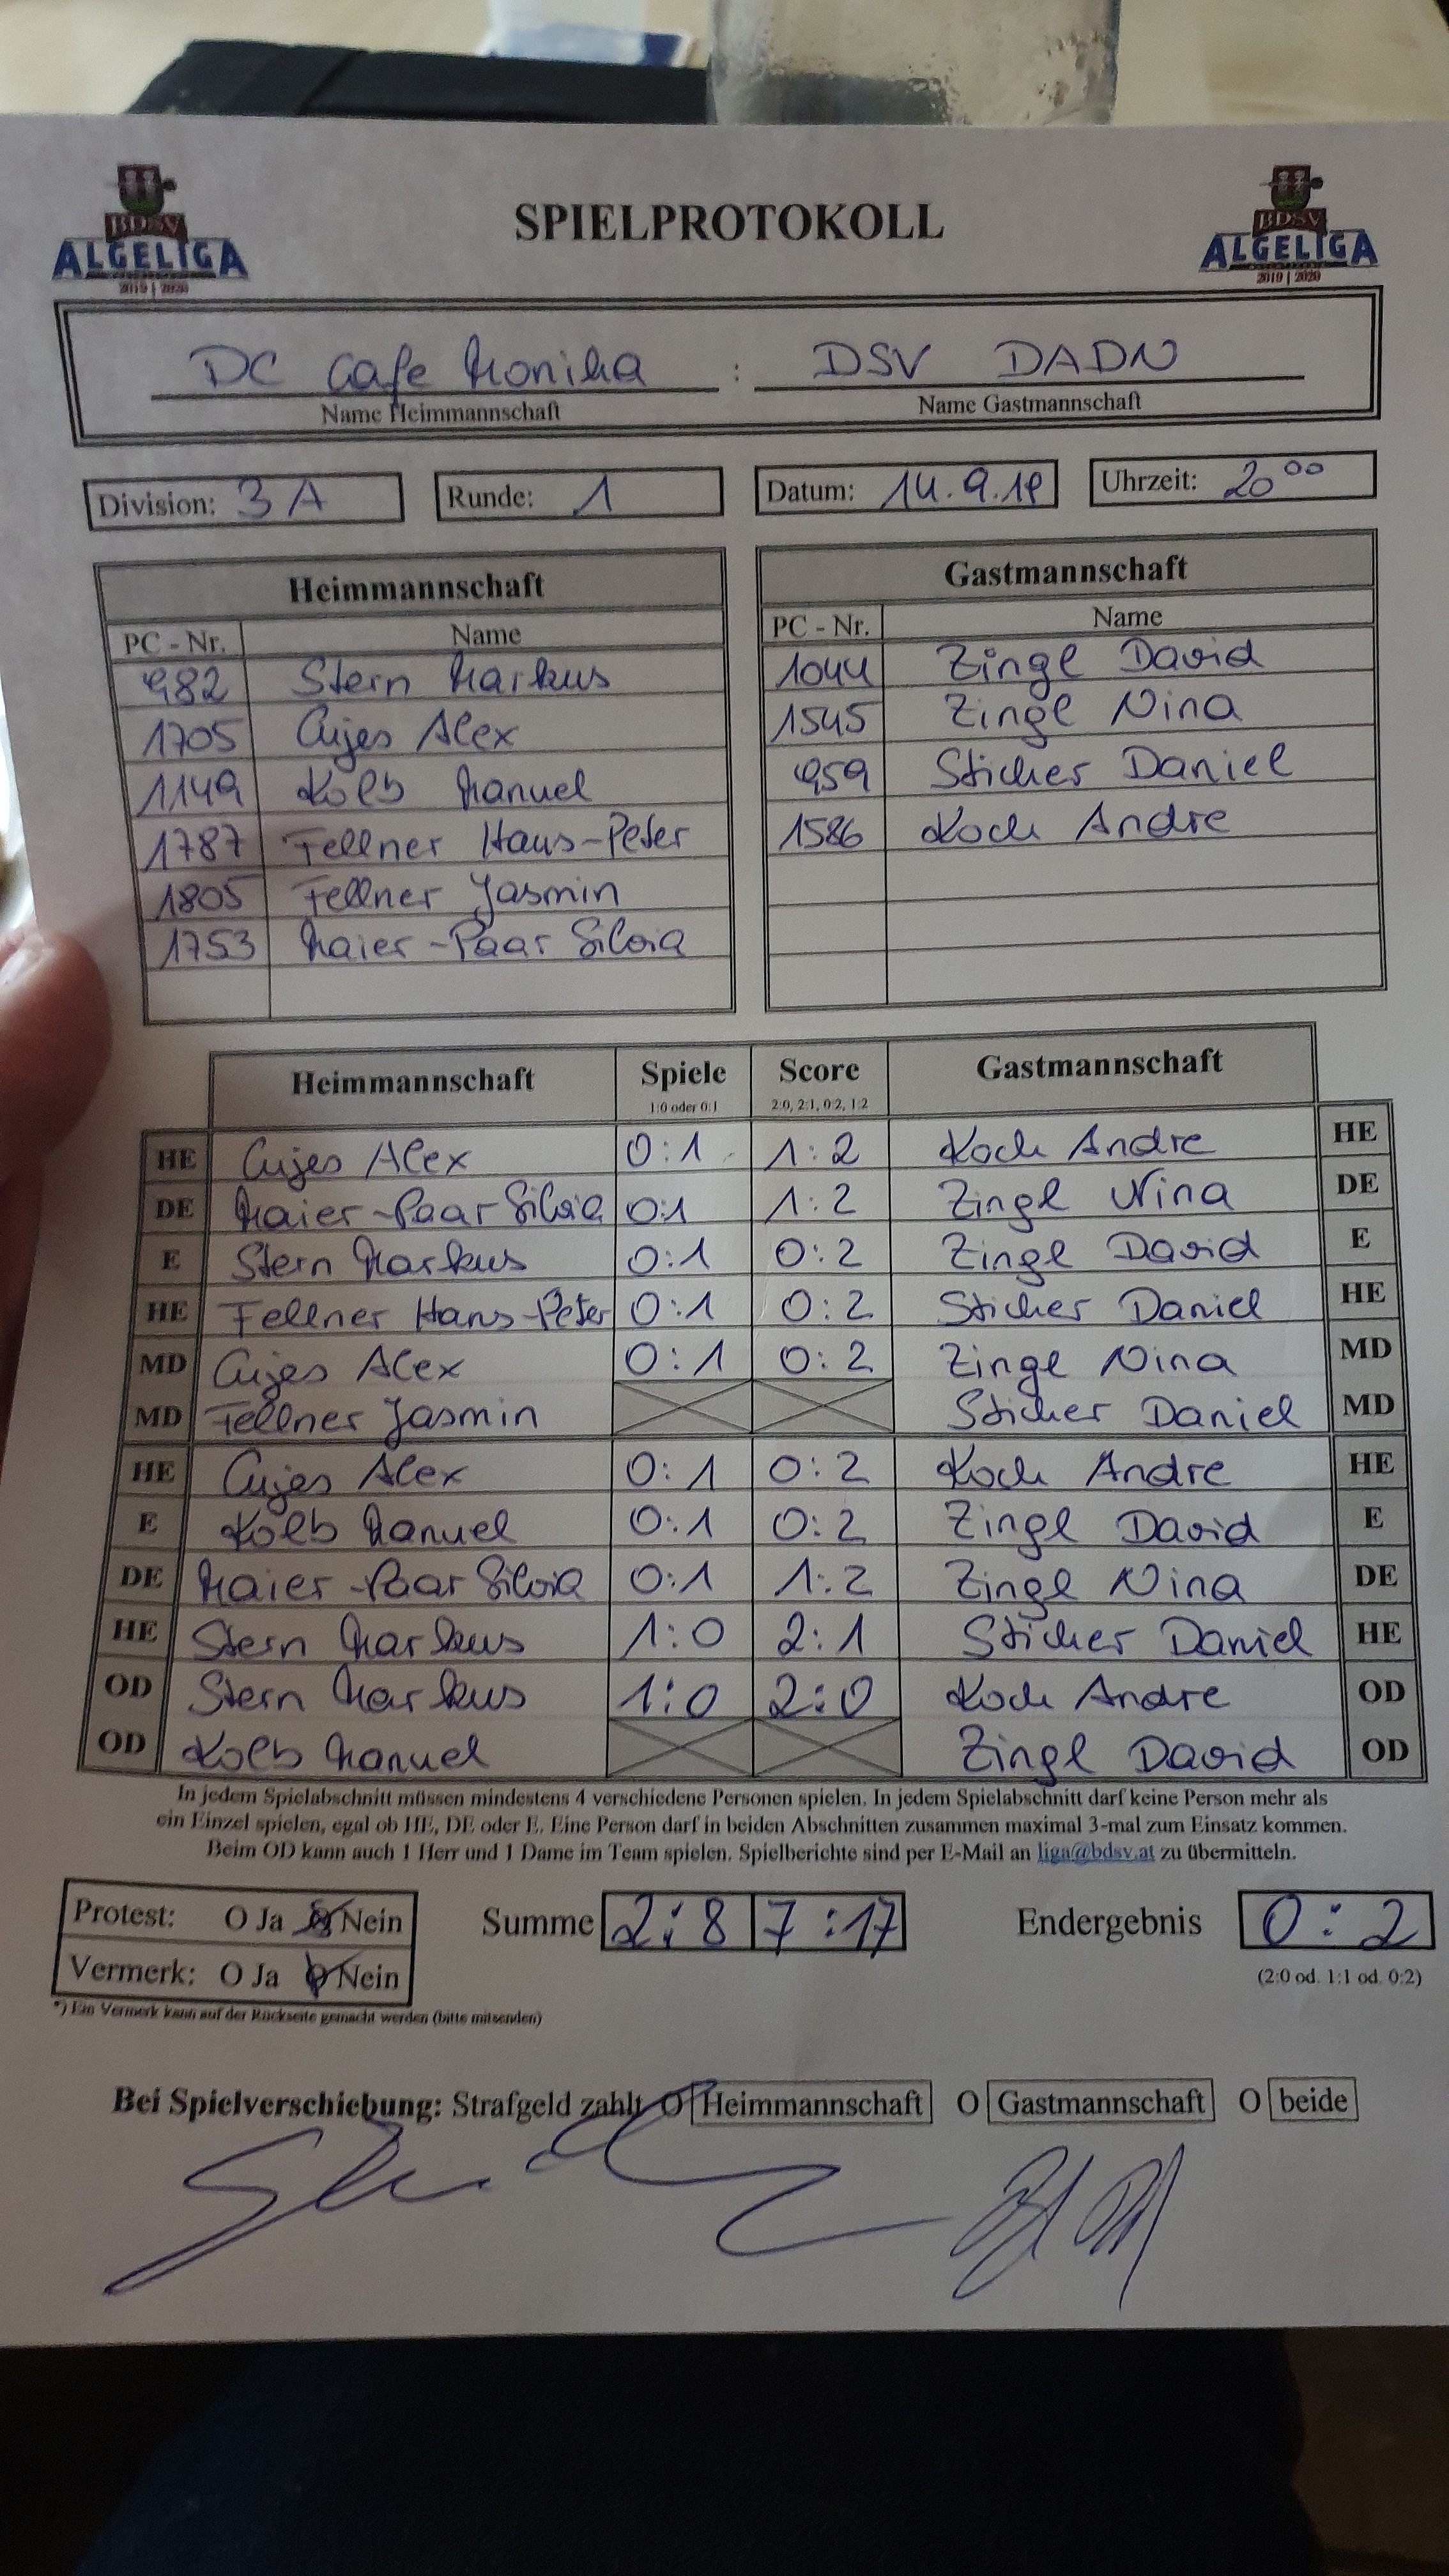 BDSV
ALGELIGA
2019 | 2020
SPIELPROTOKOLL
BDSV
ALGELIGA
2019 | 2020
DC Cafe Monika : DSV DADN
Name Heimmannschaft Name Gastmannschaft
Division: 3 A Runde: 1 Datum: 14.9.19 Uhrzeit: 20⁰⁰
Heimmannschaft Gastmannschaft
PC - Nr. Name PC - Nr. Name
982 Stern Markus 1044 Zingl David
1705 Cujes Alex 1545 Zingl Nina
1149 Kolb Manuel 959 Sticher Daniel
1787 Fellner Hans-Peter 1586 Koch Andre
1805 Fellner Jasmin
1753 Maier-Paar Silvia
Heimmannschaft Spiele Score Gastmannschaft
1:0 oder 0:1 2:0, 2:1, 0:2, 1:2
HE Cujes Alex 0:1 1:2 Koch Andre HE
DE Maier-Paar Silvia 0:1 1:2 Zingl Nina DE
E Stern Markus 0:1 0:2 Zingl David E
HE Fellner Hans-Peter 0:1 0:2 Sticher Daniel HE
MD Cujes Alex 0:1 0:2 Zingl Nina MD
MD Fellner Jasmin Sticher Daniel MD
HE Cujes Alex 0:1 0:2 Koch Andre HE
E Kolb Manuel 0:1 0:2 Zingl David E
DE Maier-Paar Silvia 0:1 1:2 Zingl Nina DE
HE Stern Markus 1:0 2:1 Sticher Daniel HE
OD Stern Markus 1:0 2:0 Koch Andre OD
OD Kolb Manuel Zingl David OD
In jedem Spielabschnitt müssen mindestens 4 verschiedene Personen spielen. In jedem Spielabschnitt darf keine Person mehr als
ein Einzel spielen, egal ob HE, DE oder E. Eine Person darf in beiden Abschnitten zusammen maximal 3-mal zum Einsatz kommen.
Beim OD kann auch 1 Herr und 1 Dame im Team spielen. Spielberichte sind per E-Mail an liga@bdsv.at zu übermitteln.
Protest: O Ja O Nein Summe 2:8 7:17 Endergebnis 0:2
Vermerk: O Ja O Nein (2:0 od. 1:1 od. 0:2)
*) Ein Vermerk kann auf der Rückseite gemacht werden (bitte mitsenden)
Bei Spielverschiebung: Strafgeld zahlt O Heimmannschaft O Gastmannschaft O beide